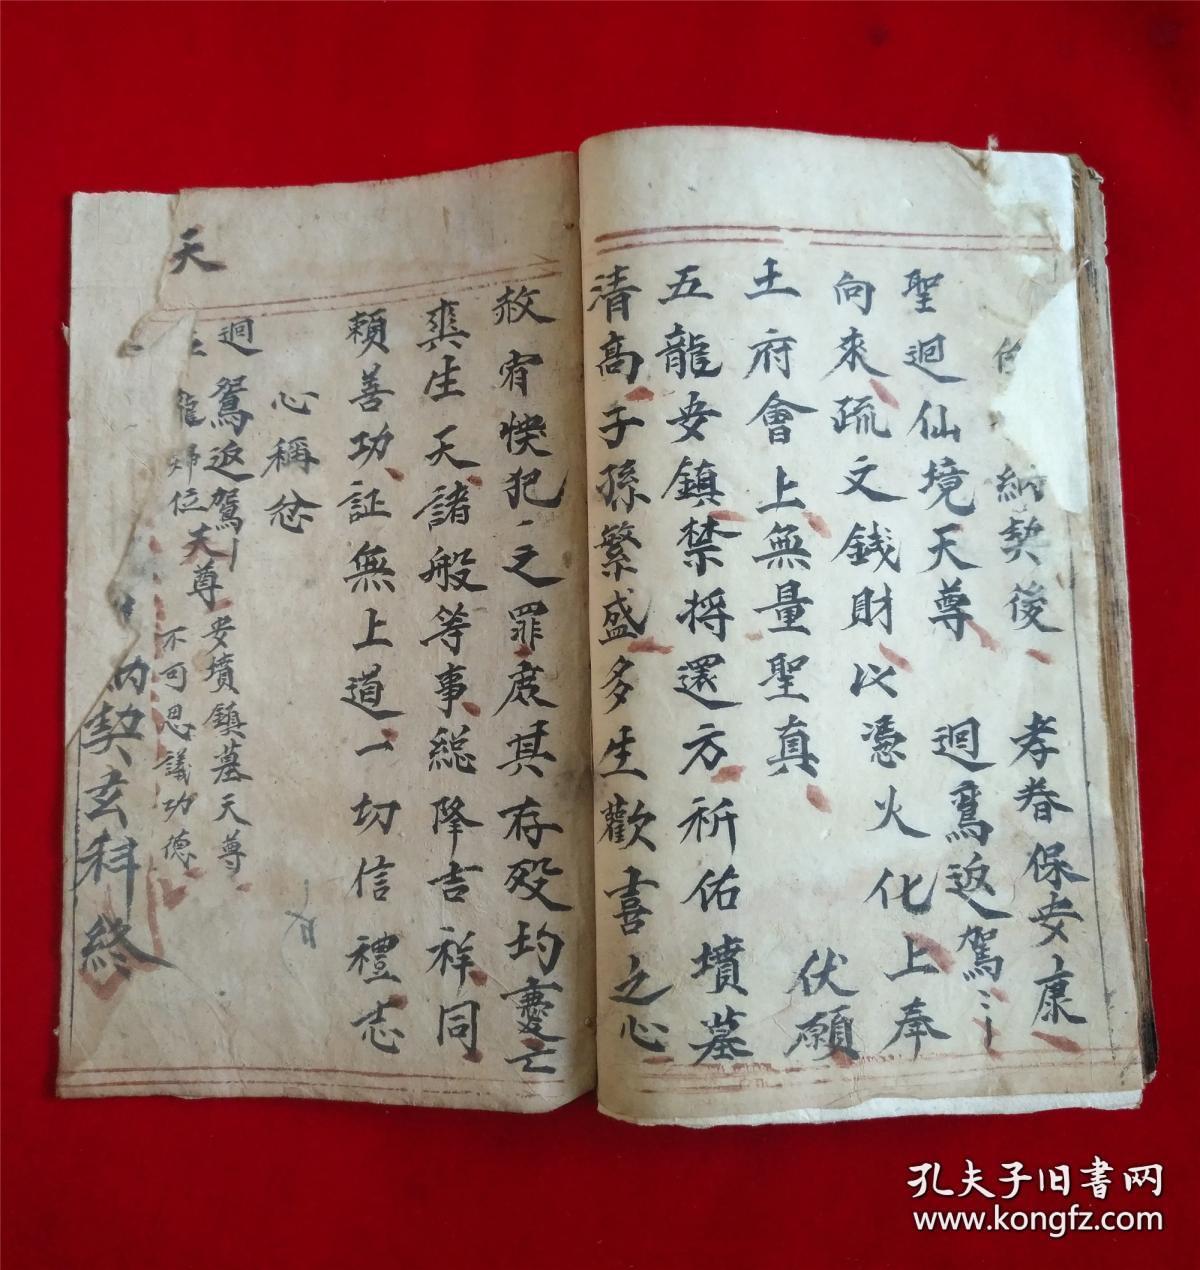 納契後 孝眷保安康
聖迴仙境天尊 迴鸞返駕
向來疏文錢財以憑火化上奉
土府會上無量聖真 伏願
五龍安鎮禁將還方祈佑墳墓
清高子孫繁盛多生歡喜之心
赦宥悮犯之罪庶其存歿均慶亡
爽生天諸般等事総降吉祥同
賴善功証無上道一切信禮志
心稱念
天
迴鸞返駕 天尊 安墳鎮墓天尊
龍歸位 不可思議功德
契玄科終
孔夫子旧書网
www.kongfz.com